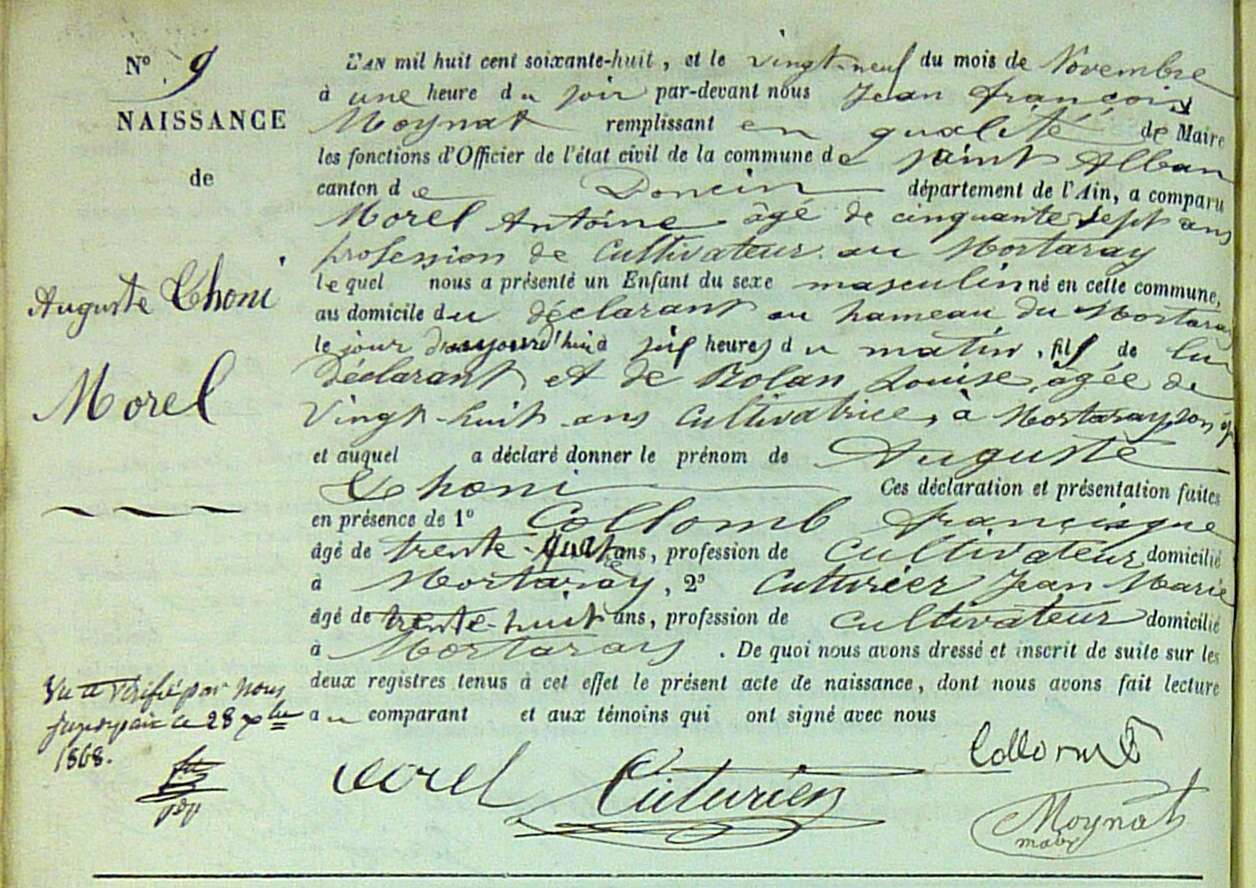 N° 9
NAISSANCE
de
Auguste Choni
Morel
L'AN mil huit cent soixante-huit, et le vingt-neuf du mois de Novembre
à une heure du soir par-devant nous Jean François
Moynat remplissant en qualité de Maire
les fonctions d'Officier de l'état civil de la commune de Saint Alban
canton de Poncin département de l'Ain, a comparu
Morel Antoine âgé de cinquante sept ans
profession de Cultivateur au Mortaray
lequel nous a présenté un Enfant du sexe masculin né en cette commune,
au domicile du déclarant au hameau du Mortaray
le jour d'aujourd'hui à six heures du matin, fils de lui
Déclarant et de Rolan Louise, agée de
Vingt-huit ans Cultivatrice, à Mortaray, son
et auquel a déclaré donner le prénom de Auguste
Choni Ces déclaration et présentation faites
en présence de 1° Collomb Francisque
âgé de trente-quatre ans, profession de Cultivateur domicilié
à Mortaray, 2° Cuturier Jean Marie
âgé de trente-huit ans, profession de Cultivateur domicilié
à Mortaray. De quoi nous avons dressé et inscrit de suite sur les
deux registres tenus à cet effet le présent acte de naissance, dont nous avons fait lecture
au comparant et aux témoins qui ont signé avec nous
Vu et Vérifié par Nous
Juge de paix le 28 Xbre
1868.
morel Cuturier Collomb
Moynat
maire